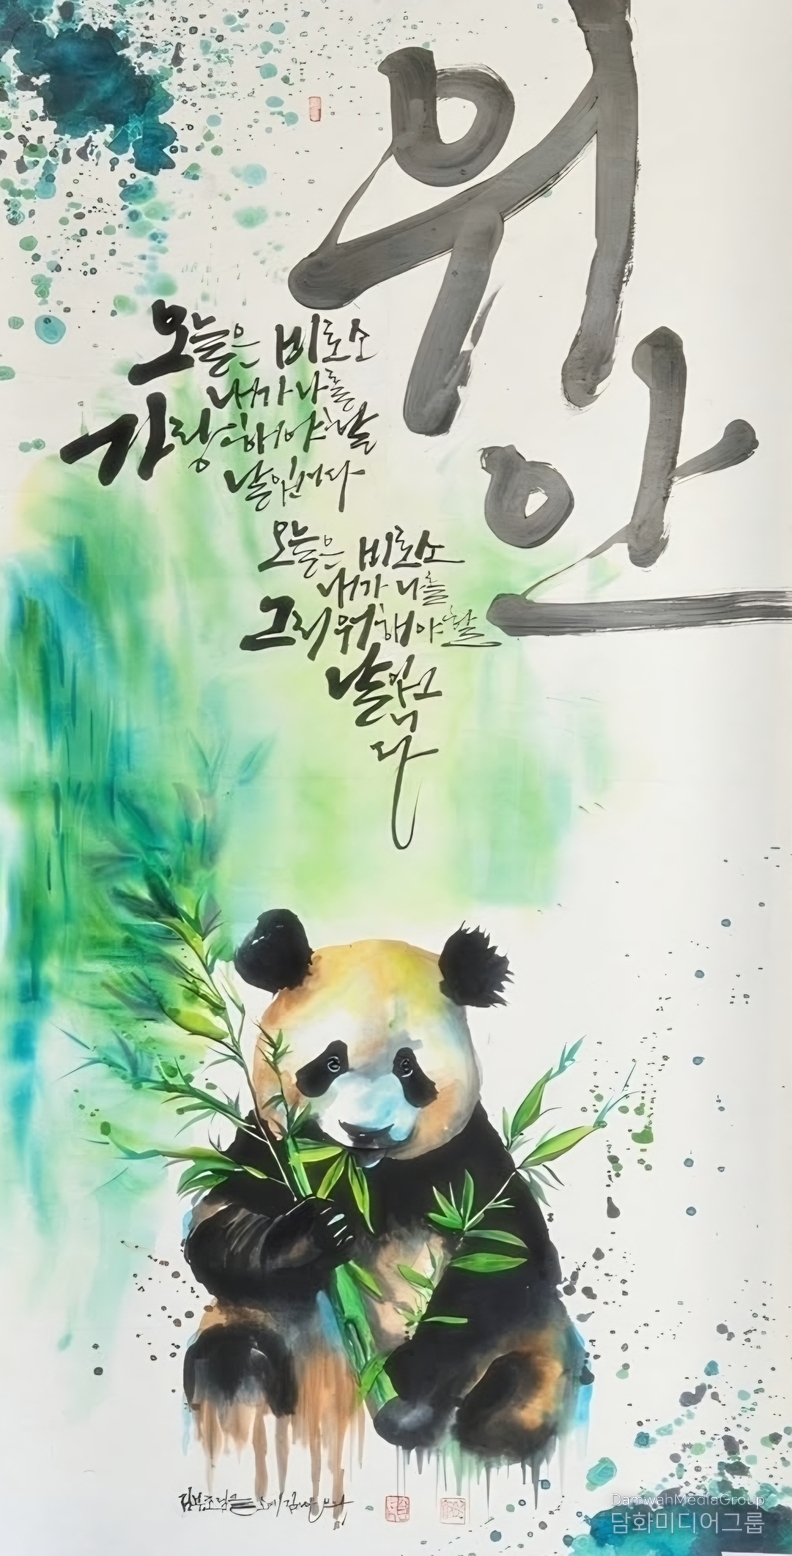 위안
오늘은 비로소
내가 나를
사랑해야할
날입니다
오늘은 비로소
내가 나를
그리워해야할
날입니
다
DamwahMediaGroup
담화미디어그룹